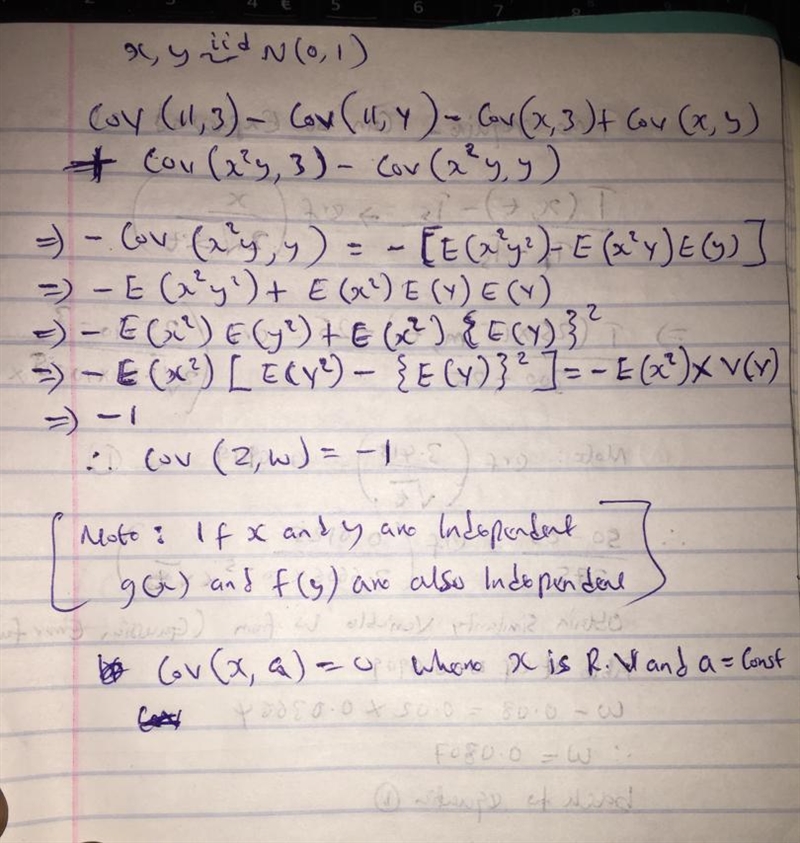 x, y iid~ N(0,1)
Cov (11,3) - Cov (11, Y) - Cov(x,3) + Cov (x,y)
+ Cov (x²y, 3) - Cov (x²y, y)
=> - Cov (x²y, y) = - [E(x²y²) - E(x²Y)E(y)]
=> - E(x²y²) + E(x²) E(Y) E(Y)
=> - E(x²) E(y²) + E(x²) {E(Y)}²
=> - E(x²) [E(Y²) - {E(Y)}²] = - E(x²) x V(Y)
=> -1
∴ Cov (Z,W) = -1
[Note: If x and y are Independent
g(x) and f(y) are also Independent]
Cov(x, a) = 0 where x is R.V and a = Const